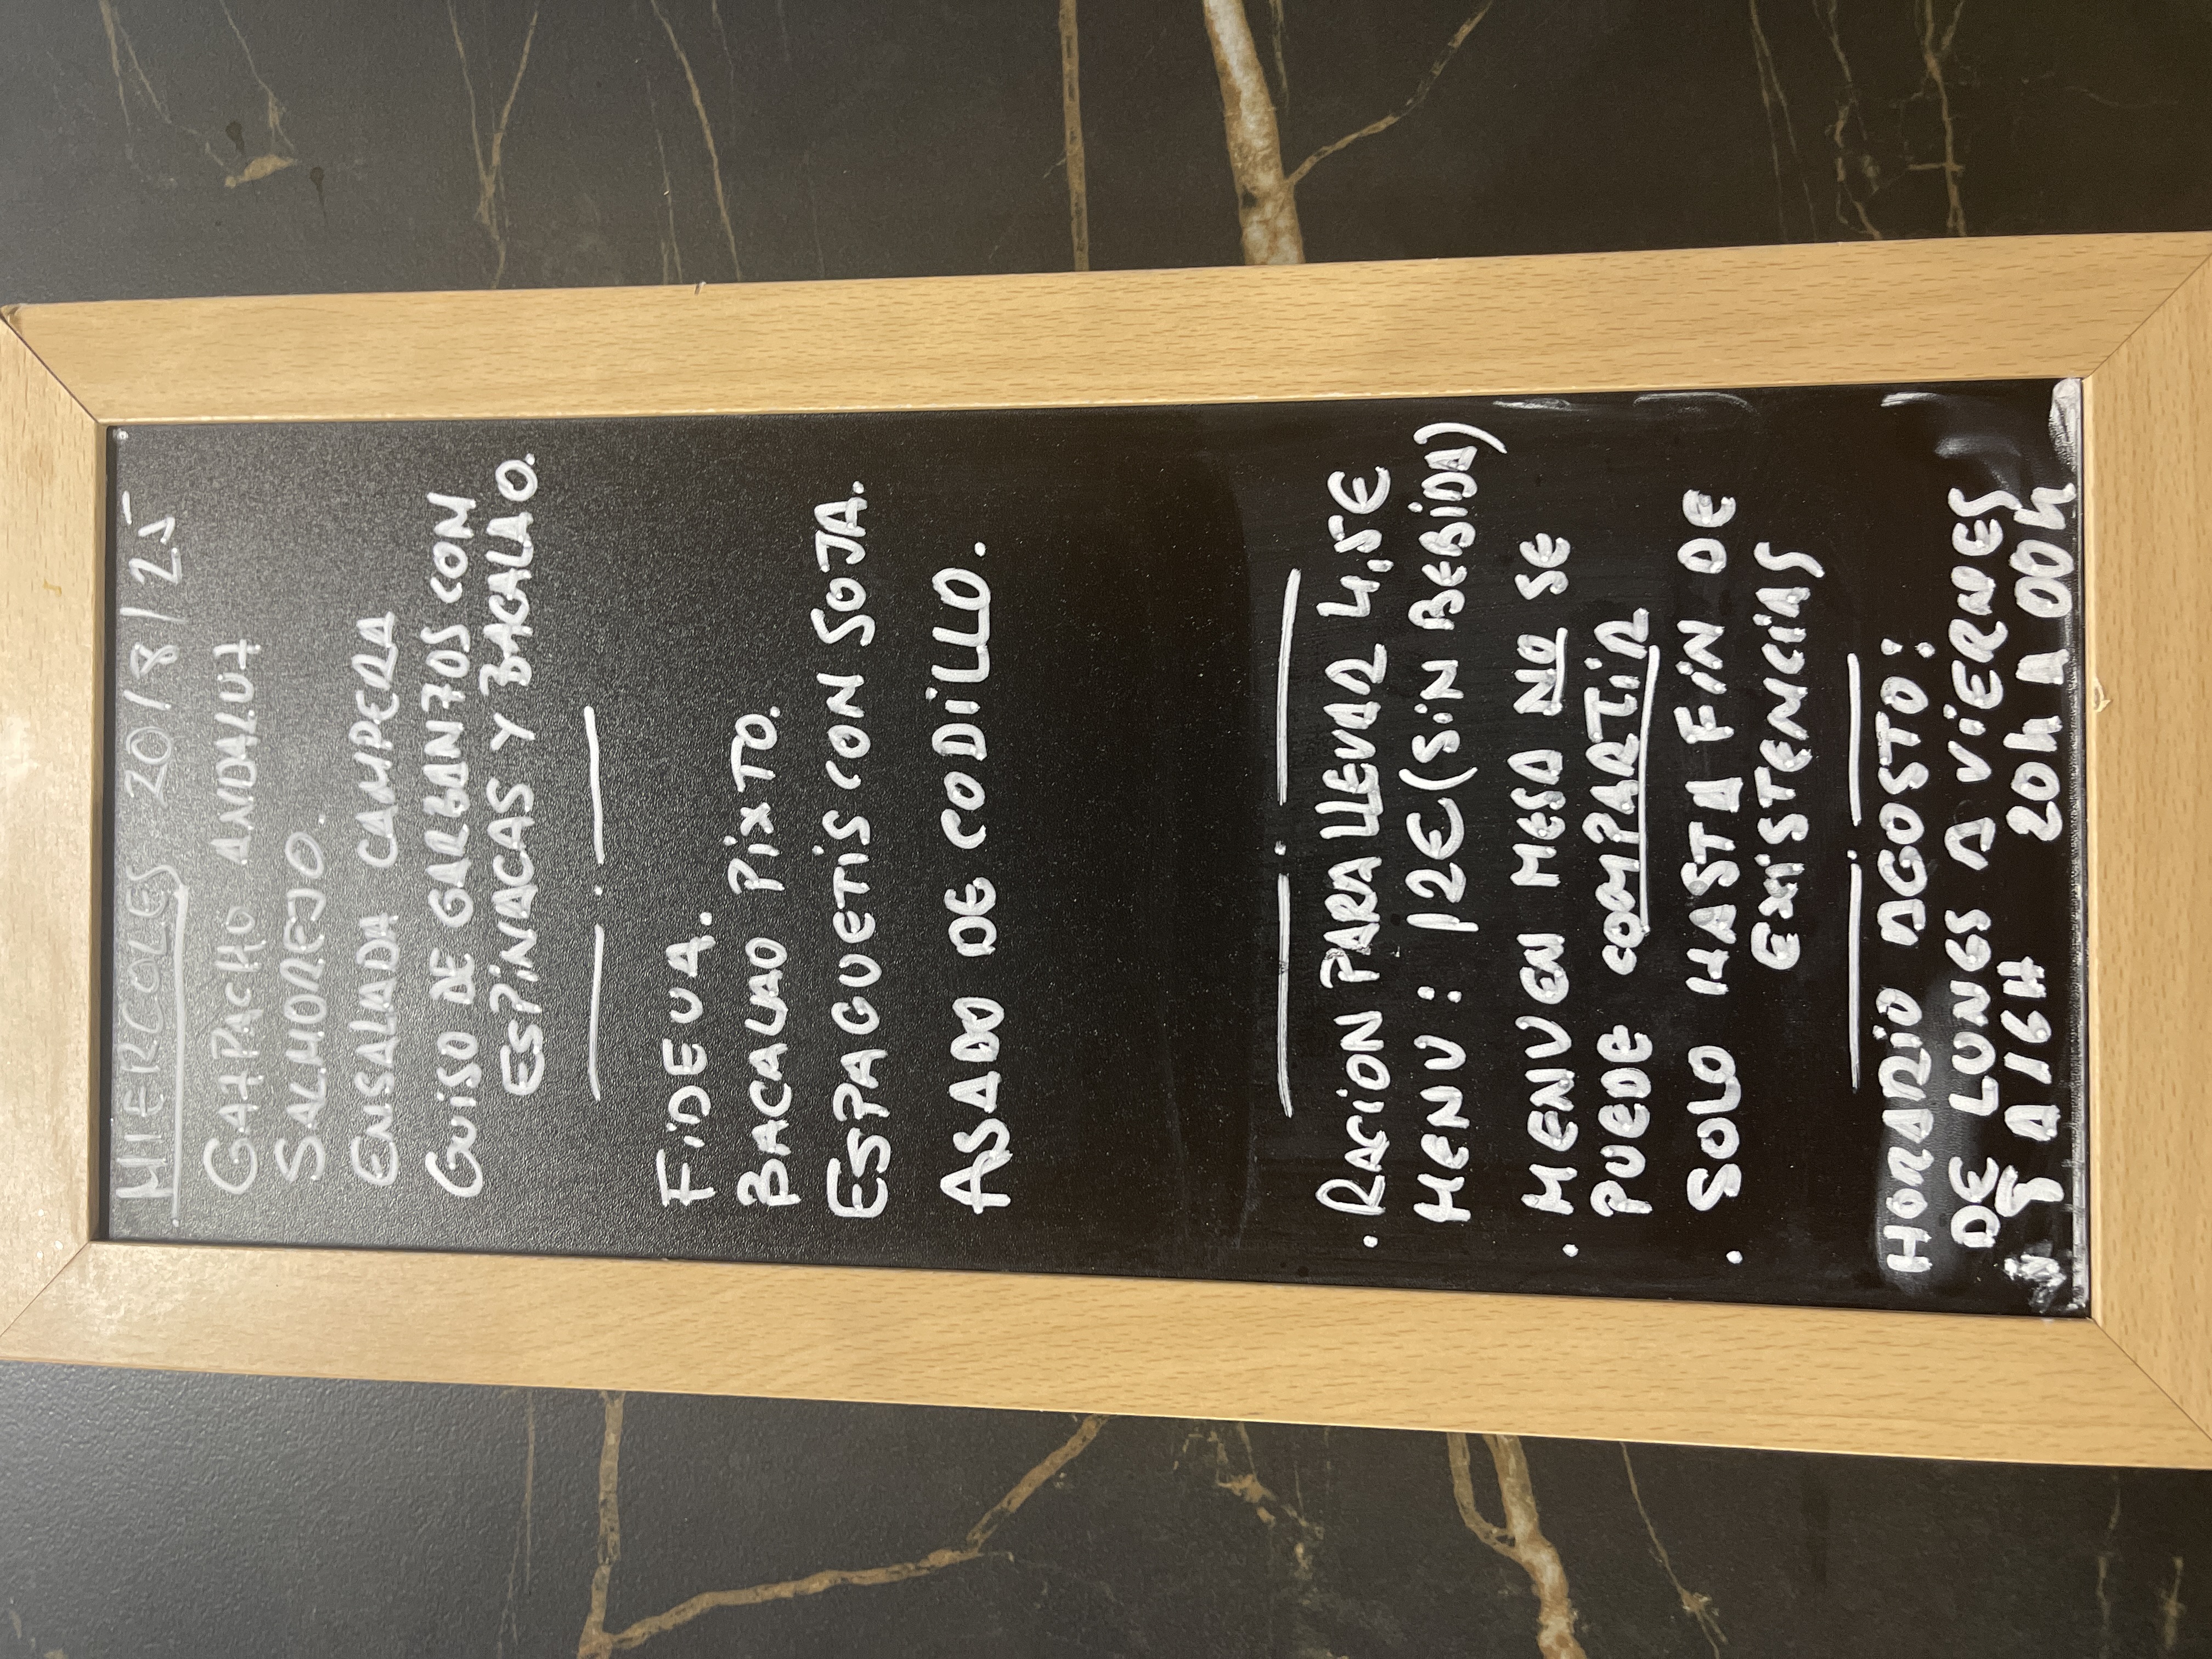 MIERCOLES 20/8/25
GAZPACHO ANDALUZ
SALMOREJO.
ENSALADA CAMPERA
GUISO DE GARBANZOS CON
ESPINACAS Y BACALAO.
FIDEUA.
BACALAO PIXTO.
ESPAGUETIS CON SOJA.
ASADO DE CODILLO.
• RACION PARA LLEVAR 4,5€
MENU: 12€ (SIN BEBIDA)
• MENU EN MESA NO SE
PUEDE COMPARTIR
• SOLO HASTA FIN DE
EXISTENCIAS
HORARIO AGOSTO:
DE LUNES A VIERNES
8 A 16H 20h A 00h